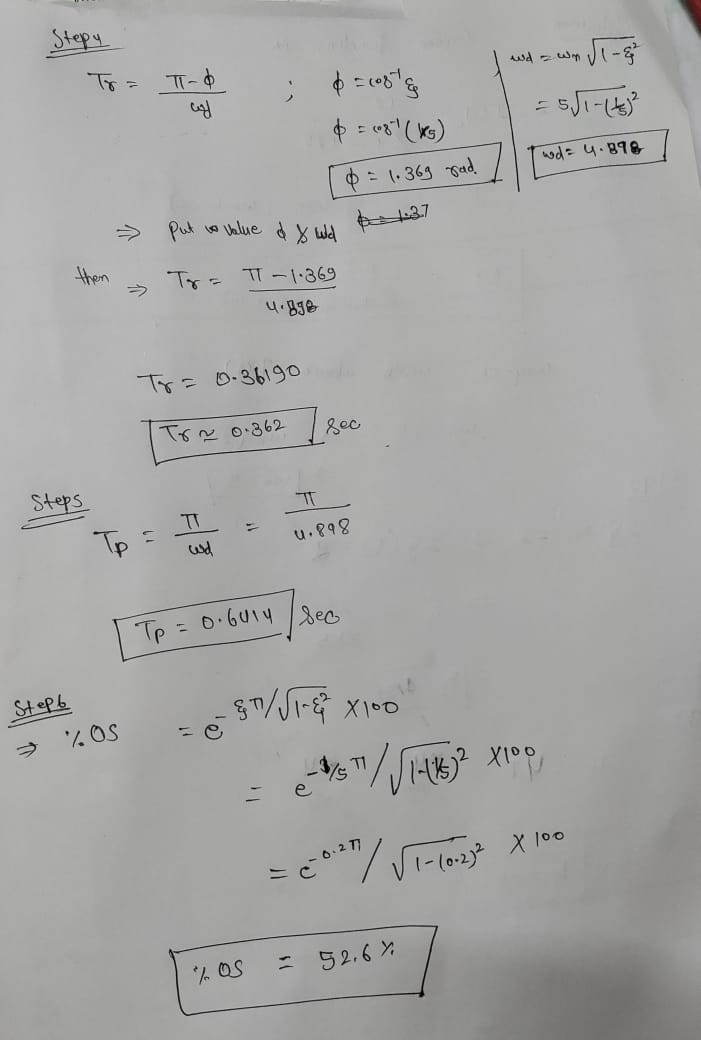 Step4
Tr = π-ϕ / ωd ; ϕ = cos⁻¹ξ
ωd = ωn √1-ξ²
ϕ = cos⁻¹(1/5)
= 5√1-(1/5)²
ϕ = 1.369 rad
ωd = 4.898
⇒ Put value ϕ & ωd
then ⇒ Tr = π - 1.369 / 4.898
Tr = 0.36190
Tr ≃ 0.362 sec
Step5
Tp = π / ωd = π / 4.898
Tp = 0.6414 sec
Step6
⇒ %OS = e^-ξπ/√1-ξ² X100
= e^-1/5π/√1-(1/5)² X100
= e^-0.2π/√1-(0.2)² X 100
% OS = 52.6 %